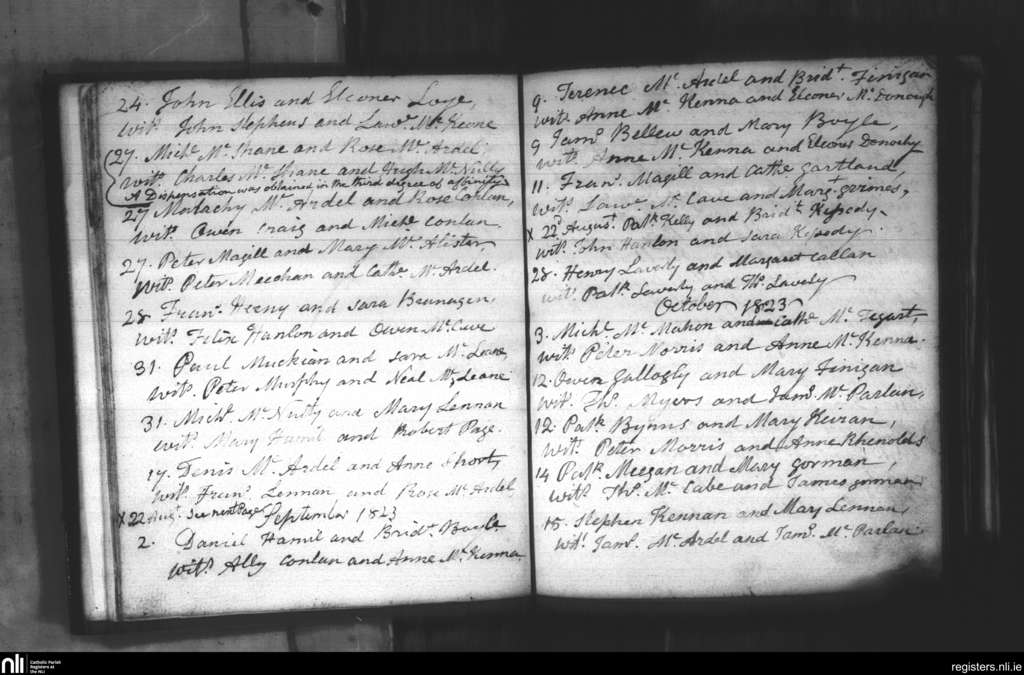 24. John Ellis and Elconer Loye,
wits. John Stephens and Lawe. Mc. Keone
27. Michl. Mc. Shane and Rose Mc. Ardel
wits. Charles Mc. Shane and Hugh Mc. Nully
A Dispensation was obtained in the third degree of affinity
27 Malachy Mc. Ardel and Rose Conlan,
wits. Owen Craig and Michl. Conlan
27. Peter Magill and Mary Mc. Alister
wits. Peter Meechan and Cathe. Mc. Ardel.
28 Frans. Heeny and Sara
wits. Felix Hanlon and Owen Mc. Cave
31. Paul Muckian and Sara Mc.
wits. Peter Murphy and Neal Mc.
31. Michl. Mc. Nully and Mary Lennan
wits. Mary Hamil and Robert Page.
17. Mc. Ardel and Anne Short,
wits. Frans. Lennan and Rose Mc. Ardel
X 22 Augt. See next Page September 1823
2. Daniel Hamil and Bridt. Boyle
wits. Ally Conlan and Anne Mc. Kenna
9. Terence Mc. Ardel and Bridt. Finigan
wits Anne Mc. Kenna and Elconer Mc. Donough
9 Jams. Bellew and Mary Boyle,
wits. Anne Mc. Kenna and Donochy
11. Frans. Magill and Cathe. Gartland,
wits. Lawe. Mc. Cave and Margt. Grimes,
X 22d. August. Patk. Kelly and Bridt.
wits. John Hanlon and Sara
28. Henry Laverty and Margaret Callan
wits. Patk. Laverty and Ths. Laverty
October 1823
3. Michl. Mc. Mahon and Cathe. Mc. Tegart,
wits. Peter Morris and Anne Mc. Kenna.
12. Owen Gallogly and Mary Finigan
wits. Ths. Myers and Jams. Mc. Parlan,
12. Patk. Byrns and Mary Kieran,
wits. Peter Morris and Anne Rhenolds
14 Patk. Meegan and Mary Gorman,
wits. Ths. Mc. Cabe and James Gorman
15. Stephen Kennan and Mary Lennan,
wits. Jams. Mc. Ardel and Jams. Mc. Parlan
nli Catholic Parish
Registers at
the NLI
registers.nli.ie